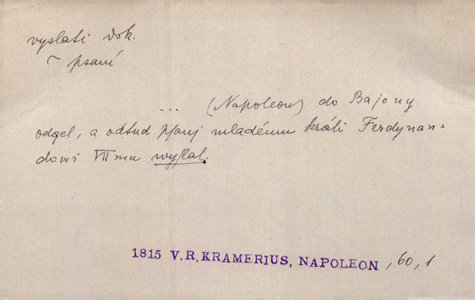 vyslati dok.
~ psaní
... (Napoleon) do Bajony
odgel, a odtud psanj mladému králi Ferdynan-
dowi VIImu wyslal.
1815 V. R. KRAMERIUS, NAPOLEON, 60, 1